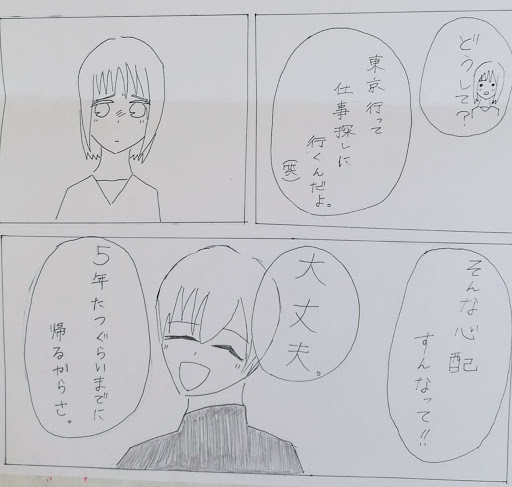 どうして?
東京行って
仕事探しに
行くんだよ。
(笑)
そんな心配
すんなって!!
大丈夫。
5年たつぐらいまでに
帰るからさ。